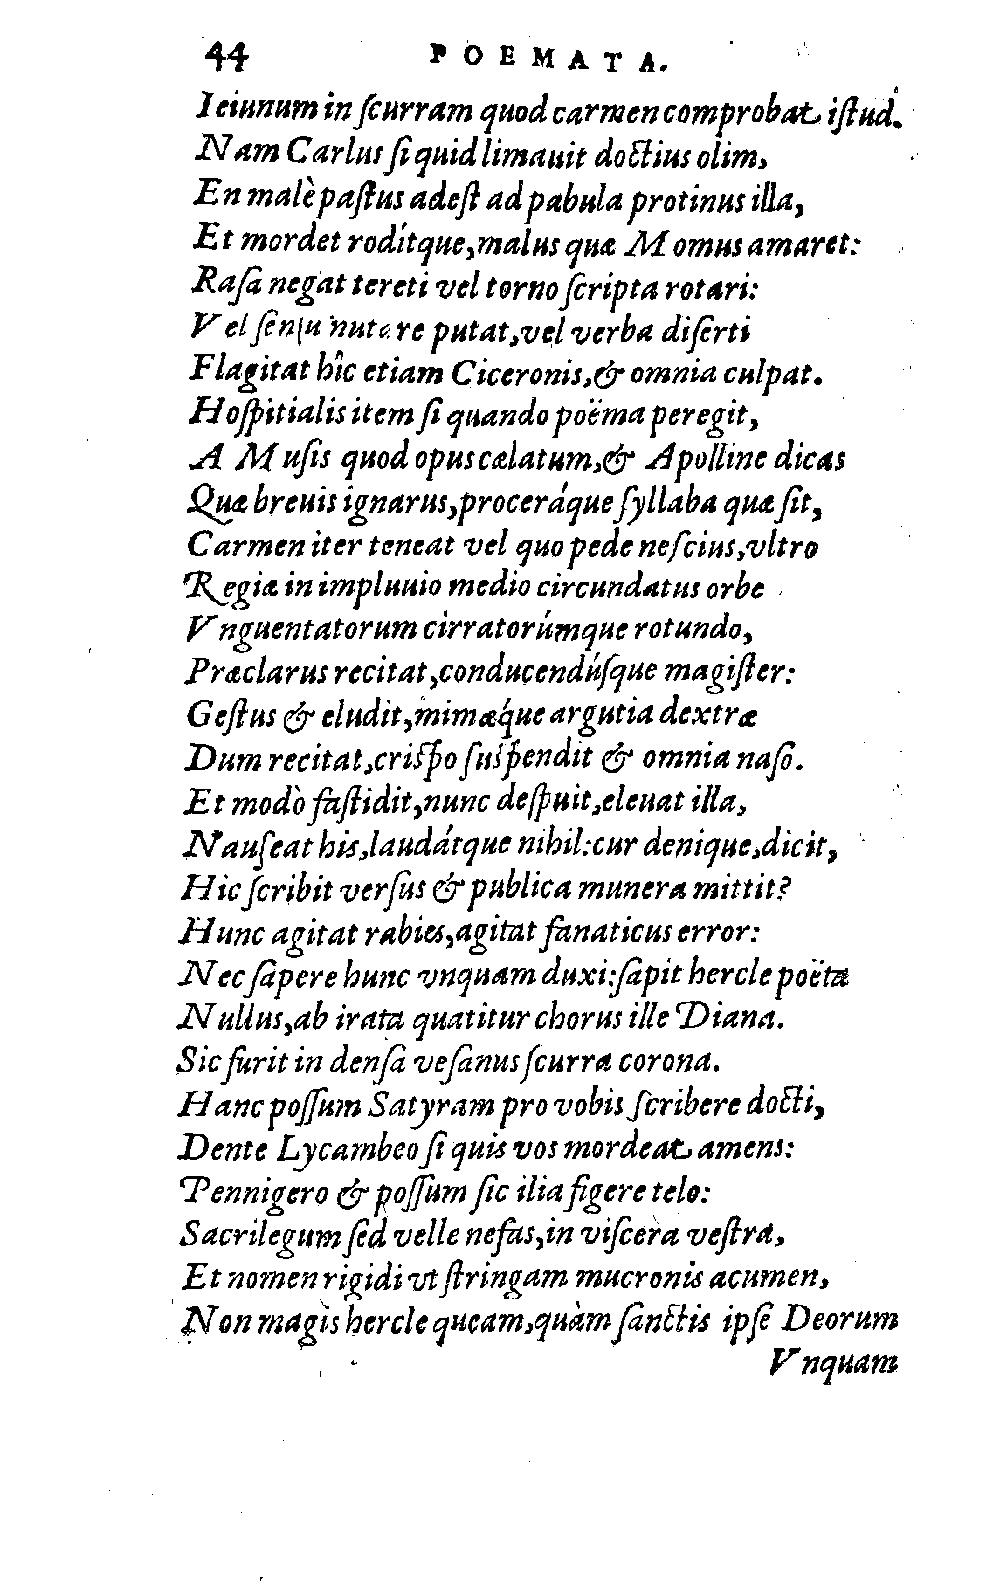 44 POEMATA.
Ieiunum in ſcurram quod carmen comprobat iſtud.
Nam Carlus ſi quid limauit doctius olim,
En malè paſtus adeſt ad pabula protinus illa,
Et mordet rodítque, malus quæ Momus amaret:
Raſa negat tereti vel torno ſcripta rotari:
Vel ſenſu nutare putat, vel verba diſerti
Flagitat hîc etiam Ciceronis, & omnia culpat.
Hoſpitialis item ſi quando poëma peregit,
A Muſis quod opus cælatum, & Apolline dicas
Quæ breuis ignarus, proceráque ſyllaba quæ ſit,
Carmen iter teneat vel quo pede neſcius, vltro
Regiæ in impluuio medio circundatus orbe
Vnguentatorum cirratorúmque rotundo,
Præclarus recitat, conducendúſque magiſter:
Geſtus & eludit, mimæque argutia dextræ
Dum recitat, criſpo ſuſpendit & omnia naſo.
Et modò faſtidit, nunc deſpuit, eleuat illa,
Nauſeat his, laudátque nihil: cur denique, dicit,
Hic ſcribit verſus & publica munera mittit?
Hunc agitat rabies, agitat fanaticus error:
Nec ſapere hunc vnquam duxi: ſapit hercle poëta
Nullus, ab irata quatitur chorus ille Diana.
Sic furit in denſa veſanus ſcurra corona.
Hanc poſſum Satyram pro vobis ſcribere docti,
Dente Lycambeo ſi quis vos mordeat amens:
Pennigero & poſſum ſic ilia figere telo:
Sacrilegum ſed velle nefas, in viſcera veſtra,
Et nomen rigidi vt ſtringam mucronis acumen,
Non magis hercle queam, quàm ſanctis ipſe Deorum
Vnquam